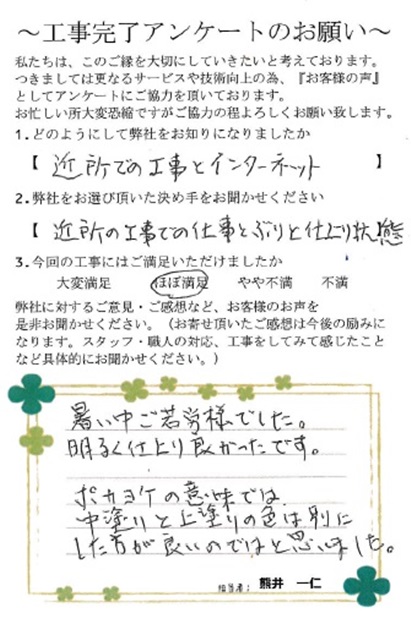 ～工事完了アンケートのお願い～
私たちは、このご縁を大切にしていきたいと考えております。
つきましては更なるサービスや技術向上の為、『お客様の声』
としてアンケートにご協力を頂いております。
お忙しい所大変恐縮ですがご協力の程よろしくお願い致します。
1.どのようにして弊社をお知りになりましたか
【 近所での工事とインターネット 】
2.弊社をお選び頂いた決め手をお聞かせください
【 近所の工事での仕事とぶりと仕上り状態
3.今回の工事にはご満足いただけましたか
大変満足 ほぼ満足 やや不満 不満
弊社に対するご意見・ご感想など、お客様のお声を
是非お聞かせください。（お寄せ頂いたご感想は今後の励みに
なります。スタッフ・職人の対応、工事をしてみて感じたこと
など具体的にお聞かせください。）
暑い中ご苦労様でした。
明るく仕上り良かったです。
ポカヨケの意味では、
中塗りと上塗りの色は別に
した方が良いのではと思いました。
担当者： 熊井 一仁